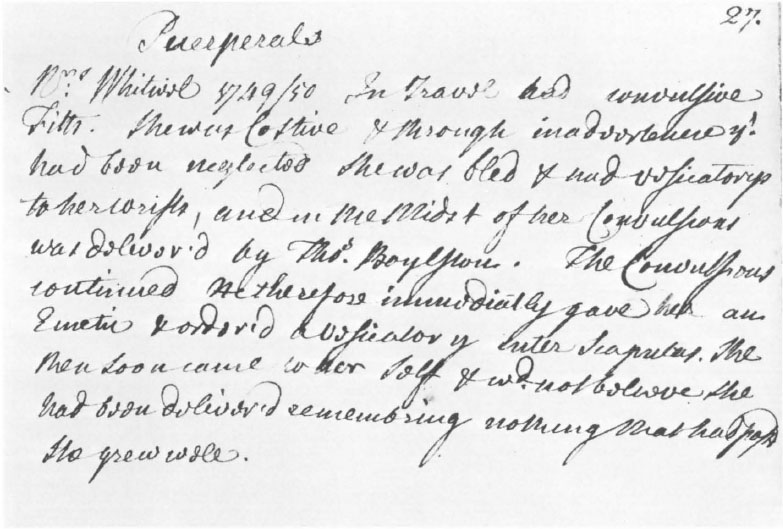 27.
Puerperals
Mrs Whitwel 1749/50 In Travel had convulsive
Fitts. She was Costive & through inadvertence yt
had been neglected She was bled & had vesicatorys
to her wrists, and in the Midst of her Convulsions
was deliver'd by Thos. Boylston. The Convulsions
continued He therefore immediatly gave her an
Emetic & order'd a vesicatory inter Scapulas. She
then soon came to her Self & wd. not believe she
had been deliver'd remembring nothing that had past
She grew well.